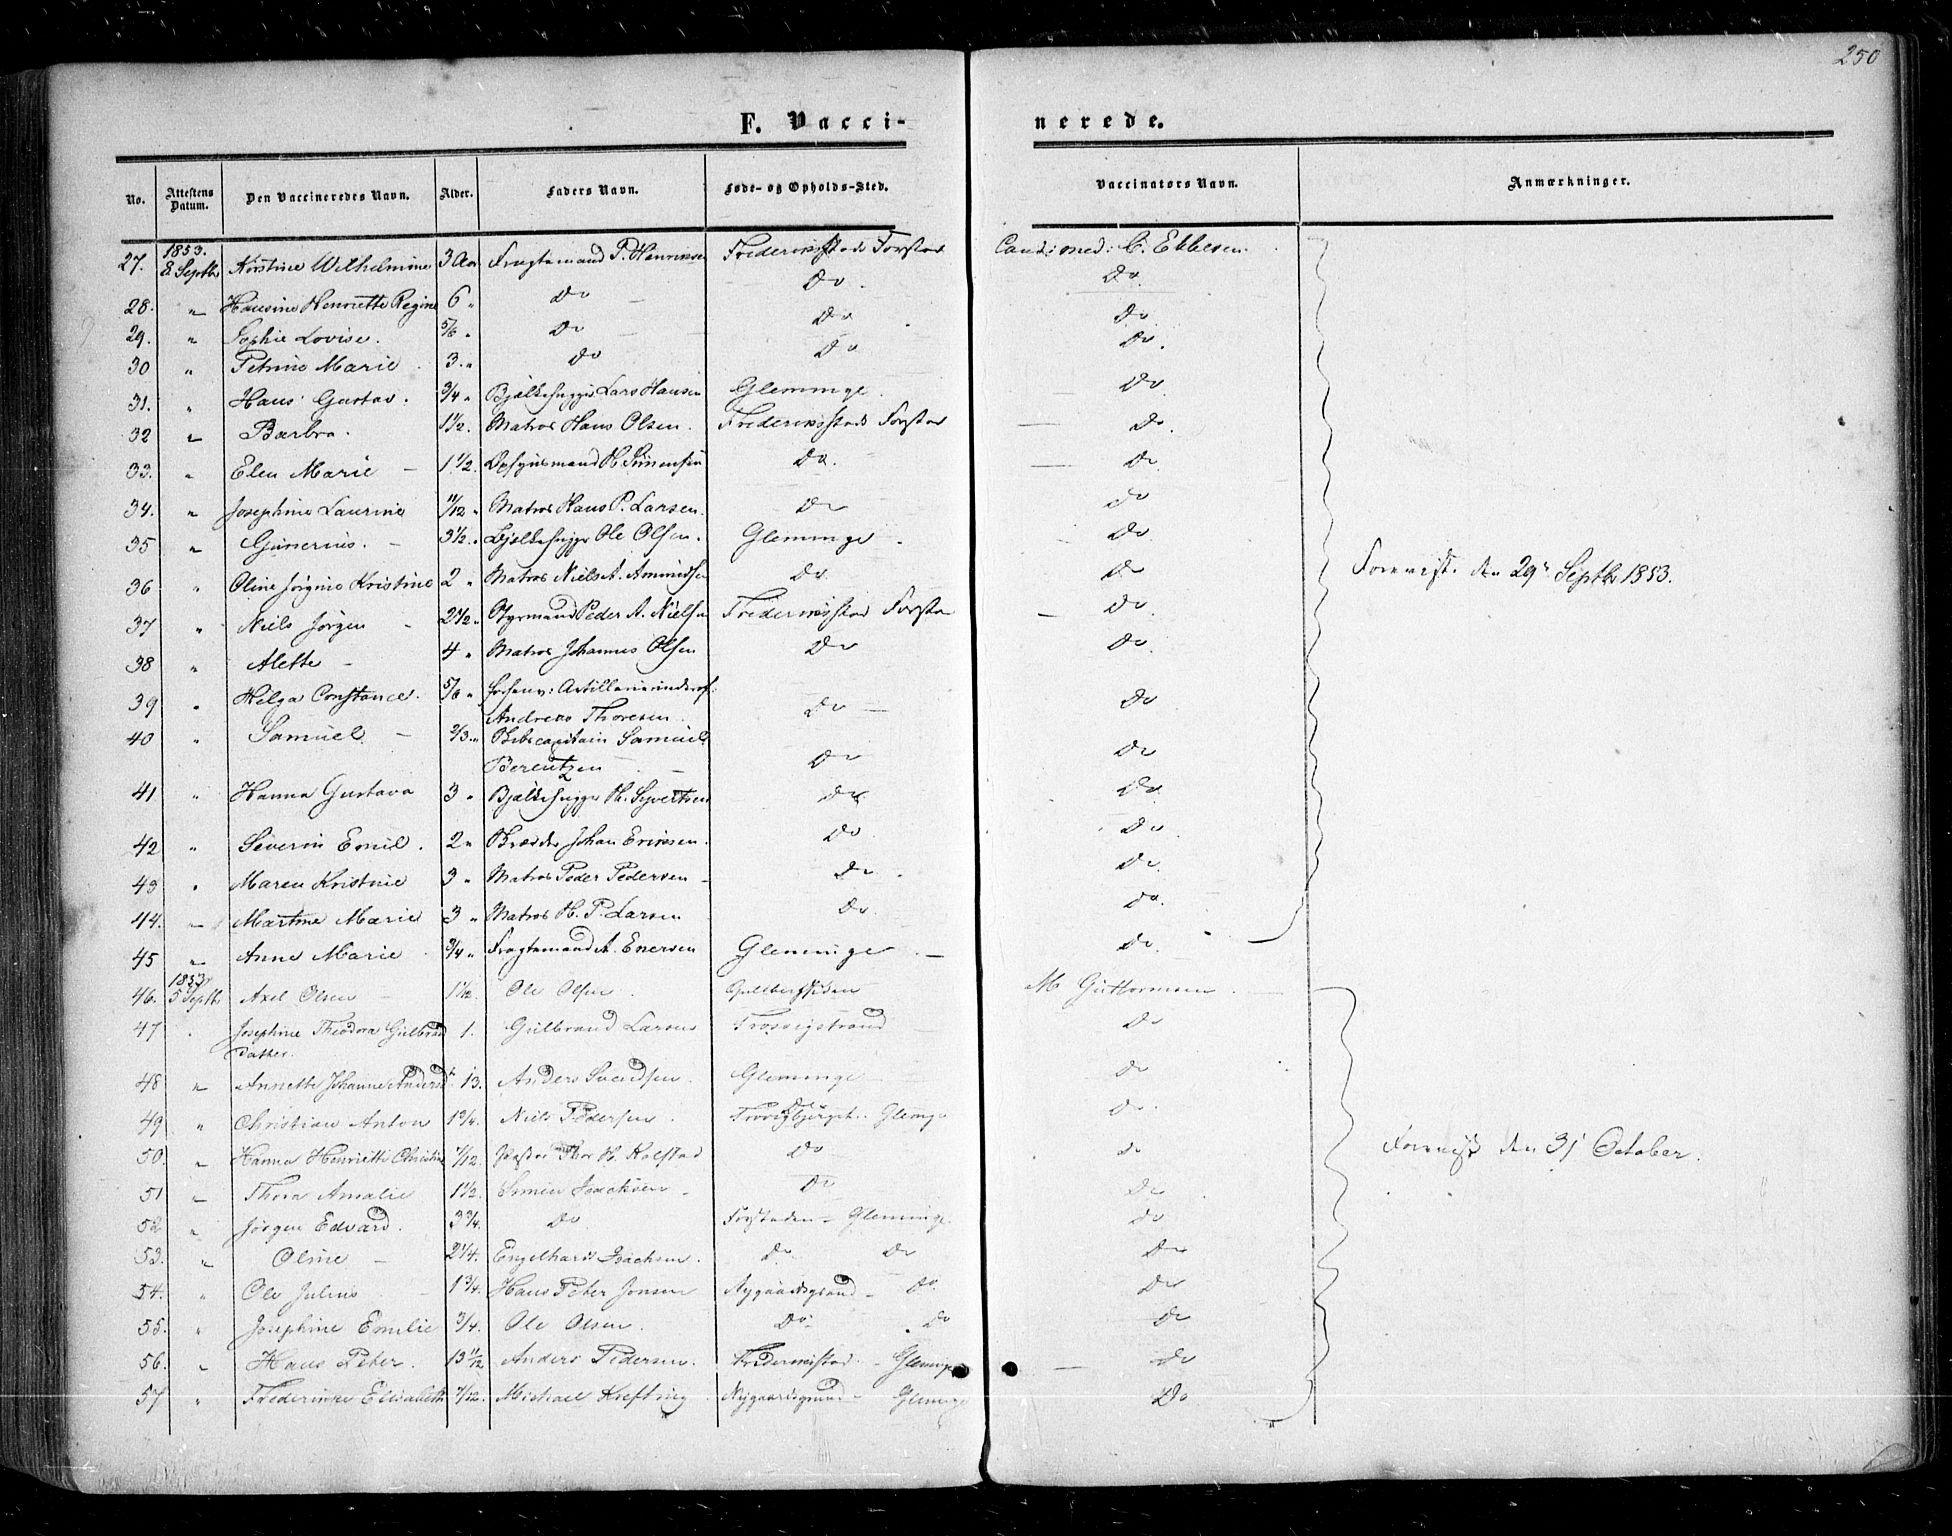 250
F. Vacci-nerede.
No. Attestens Datum. Den Vaccineredes Navn. Alder. Faders Navn. Føde- og Opholds-Sted. Vaccinators Navn. Anmærkninger.
1853.
27. 8 Septbr Kirstine Wilhelmine 3 Aar Fragtemand P. Henriksen Frederiksstads Forstad Cand: med: C. Ebbesen
28. " Hansine Henriette Regine 6 " Do Do. Do.
29. " Sophie Lovise. 5/6 " Do Do Do
30 " Petrine Marie 3. " Do Do Do.
31. " Hans Gustav. 3/4 " Bjælkehugger Lars Hansen Glemminge. Do
32 " Barbra. 1 1/2. Matros Hans Olsen. Frederiksstads Forstad Do.
33. " Elen Marie 1 1/2. H. Simensen Do. Do
34. " Josephine Laurine 11/12 " Matros Hans P. Larsen. Do Do
35 " Gunerius. 3 1/2. " Bjælkehugger Ole Olsen. Glemminge. Do.
36 " Oline Jørgine Kristine 2 " Matros Niels A. Amundsen Do. Do Foreviist den 29de Septbr 1853.
37 " Niels Jörgen 2 1/2. " Styrmand Peder A. Nielsen Frederiksstad Forstad Do.
38 " Alette 4 " Matros Johannes Olsen Do Do.
39 " Helga Constance. 5/6 " Artilleriunderof:
Andreas Thoresen. Do Do
40 " Samuel 2/3. " Skibscapitain Samuel
Berentzen Do Do
41 " Hanna Gustava 3 " Bjælkehugger H. Syvertsen Do Do.
42 " Severin Emil. 2 " Johan Eriksen. Do. Do.
43 " Maren Kristine 3 " Matros Peder Pedersen Do. Do.
44. " Martine Marie 3 " Matros H. P. Larsen Do. Do.
45 " Anne Marie 3/4 " Fragtemand A. Enersen Glemminge Do.
1853
46. 5 Septbr Axel Olsen 1 1/2. Ole Olsen. M Guttormsen
47 " Josephine Theodora Gulbrands
datter. 1. Gulbrand Larsen Trosvigstrand Do
48 " Annette Johanne Andersd 13. Anders Svendsen. Glemminge Do
49 " Christian Anton 1 3/4. Niels Pedersen. Glemge Do.
50. " Hanna Henriette Christine 7/12. Thor H. Kolstad Do Do Foreviist den 31 October.
51 " Thora Amalie 1 1/2. Simen Isachsen Do Do
52 " Jørgen Edvard. 3 3/4. Do Forstaden - Glemminge Do
53. " Oline 2 1/4. Engelhart Isachsen. Do Do Do
54. " Ole Julius 1 3/4. Hans Peter Jonsen Nygaardsgrund - Do. Do
55. " Josephine Emilie 3/4. Ole Olsen. Do. Do Do
56. " Hans Peter. 13 11/12 Anders Pedersen. Frederiksstad - Glemminge Do
57 " Frederikke Elisabeth 7/12. Michael Krefting Nygaardsgrund - Glemge Do